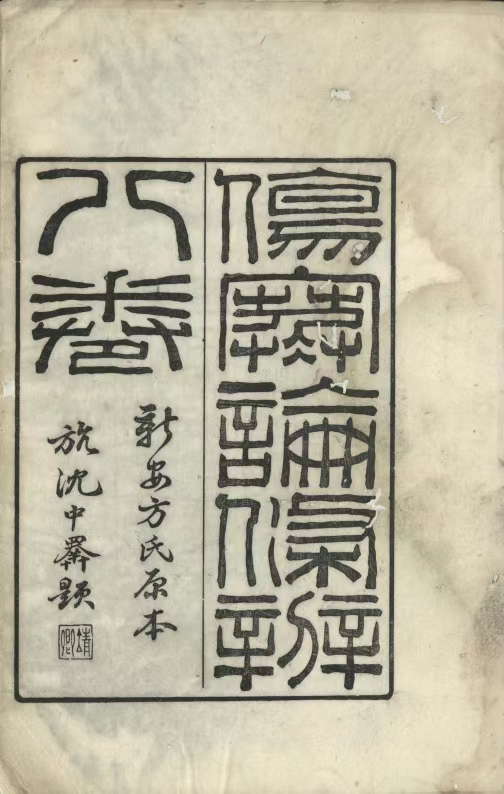 傷寒論條辨
八卷
新安方氏原本
沈中題
靖卿